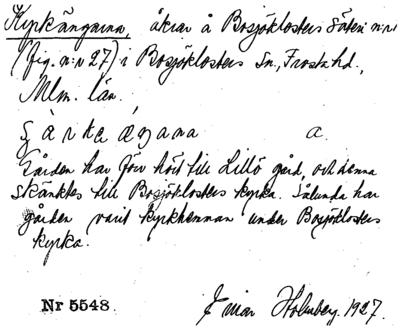 Kyrkängarna, åkrar å Bosjöklosters säteri n:r 1
(fig. n:r 27) i Bosjöklosters Sn, Frosta hd,
Mlm. län.
a.
Gården har förr hört till Lillö gård, och denna
skänktes till Bosjöklosters kyrka. Sålunda har
gården varit kyrkhemman under Bosjöklosters
kyrka.
Nr 5548. Einar Holmberg. 1927.